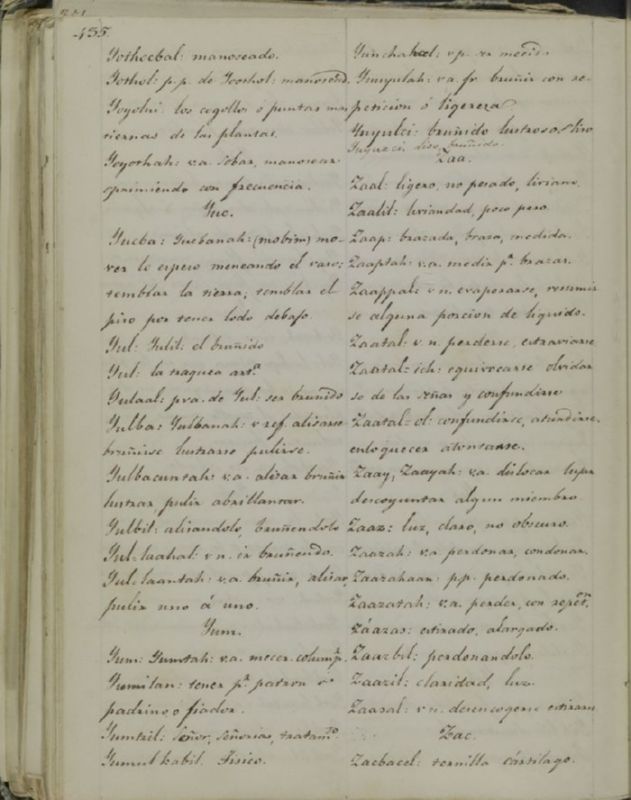 435.
Yothecbal: manoseado.
Yothol: p.p. de Yoothol: manosead.
Yoyolni: los cogollos o puntas mas
tiernas de las plantas.
Yoyothah: v.a. sobar, manosear
exprimiendo con frecuencia.
Yuc.
Yucba: Yucbanah: (mobim) mo-
ver lo espeso meneando el vaso;
temblar la tierra; temblar el
piso por tener lodo debajo
Yul: Yulil: el bruñido
Yul: la traquea art.ª
Yulaal: p.va. de Yul: ser bruñido
Yulba: Yulbanah: v ref. alisarse
bruñirse lustrarse pulirse.
Yulbacuntah: v.a. alisar bruñir
lustrar, pulir abrillantar.
Yulbil: alisandolo, bruñendolo
Yul-laahal: v n. ir bruñendo.
Yul-laantah: v.a. bruñir, alisar,
pulir uno á uno.
Yum.
Yum: Yumtah: v.a. mecer. columpr.
Yumilan: tener pr. patron o
padrino o fiador.
Yumtzil: Señor, Señorias, tratamto.
Yumul kabil. Fisico.
Yunchahal: v p.
Yuuyulah: v.a. fr bruñir con re-
peticion ó ligereza
Yuyulci: bruñido lustroso, liso
Yuyucci liso, bruñido.
Zaa.
Zaal: ligero, no pesado, liviano.
Zaalil: liviandad, poco peso.
Zaap: brazada, braza, medida.
Zaaptah: v.a. medir pr. brazas.
Zaappal: v n. evaporarse, resumir
se alguna porcion de liquido.
Zaatal: v n. perderse, extraviarse
Zaatal-ich: equivocarse olvidar
se de las señas y confundirse
Zaatal-ol: confundirse, aturdirse,
enloquecer atontarse.
Zaay, Zaayah: v.a. dislocar
descoyuntar algun miembro
Zaaz: luz, claro, no obscuro.
Zaazah: v.a perdonar, condonar.
Zaazahaan: p.p. perdonado.
Zaazatah: v.a. perder, con repeton.
Záazas: estirado, alargado.
Zaazbil: perdonandolo.
Zaazil: claridad, luz.
Zaazal: v n. desencogerse estirarse
Zac.
Zacbacel: ternilla cartilago.